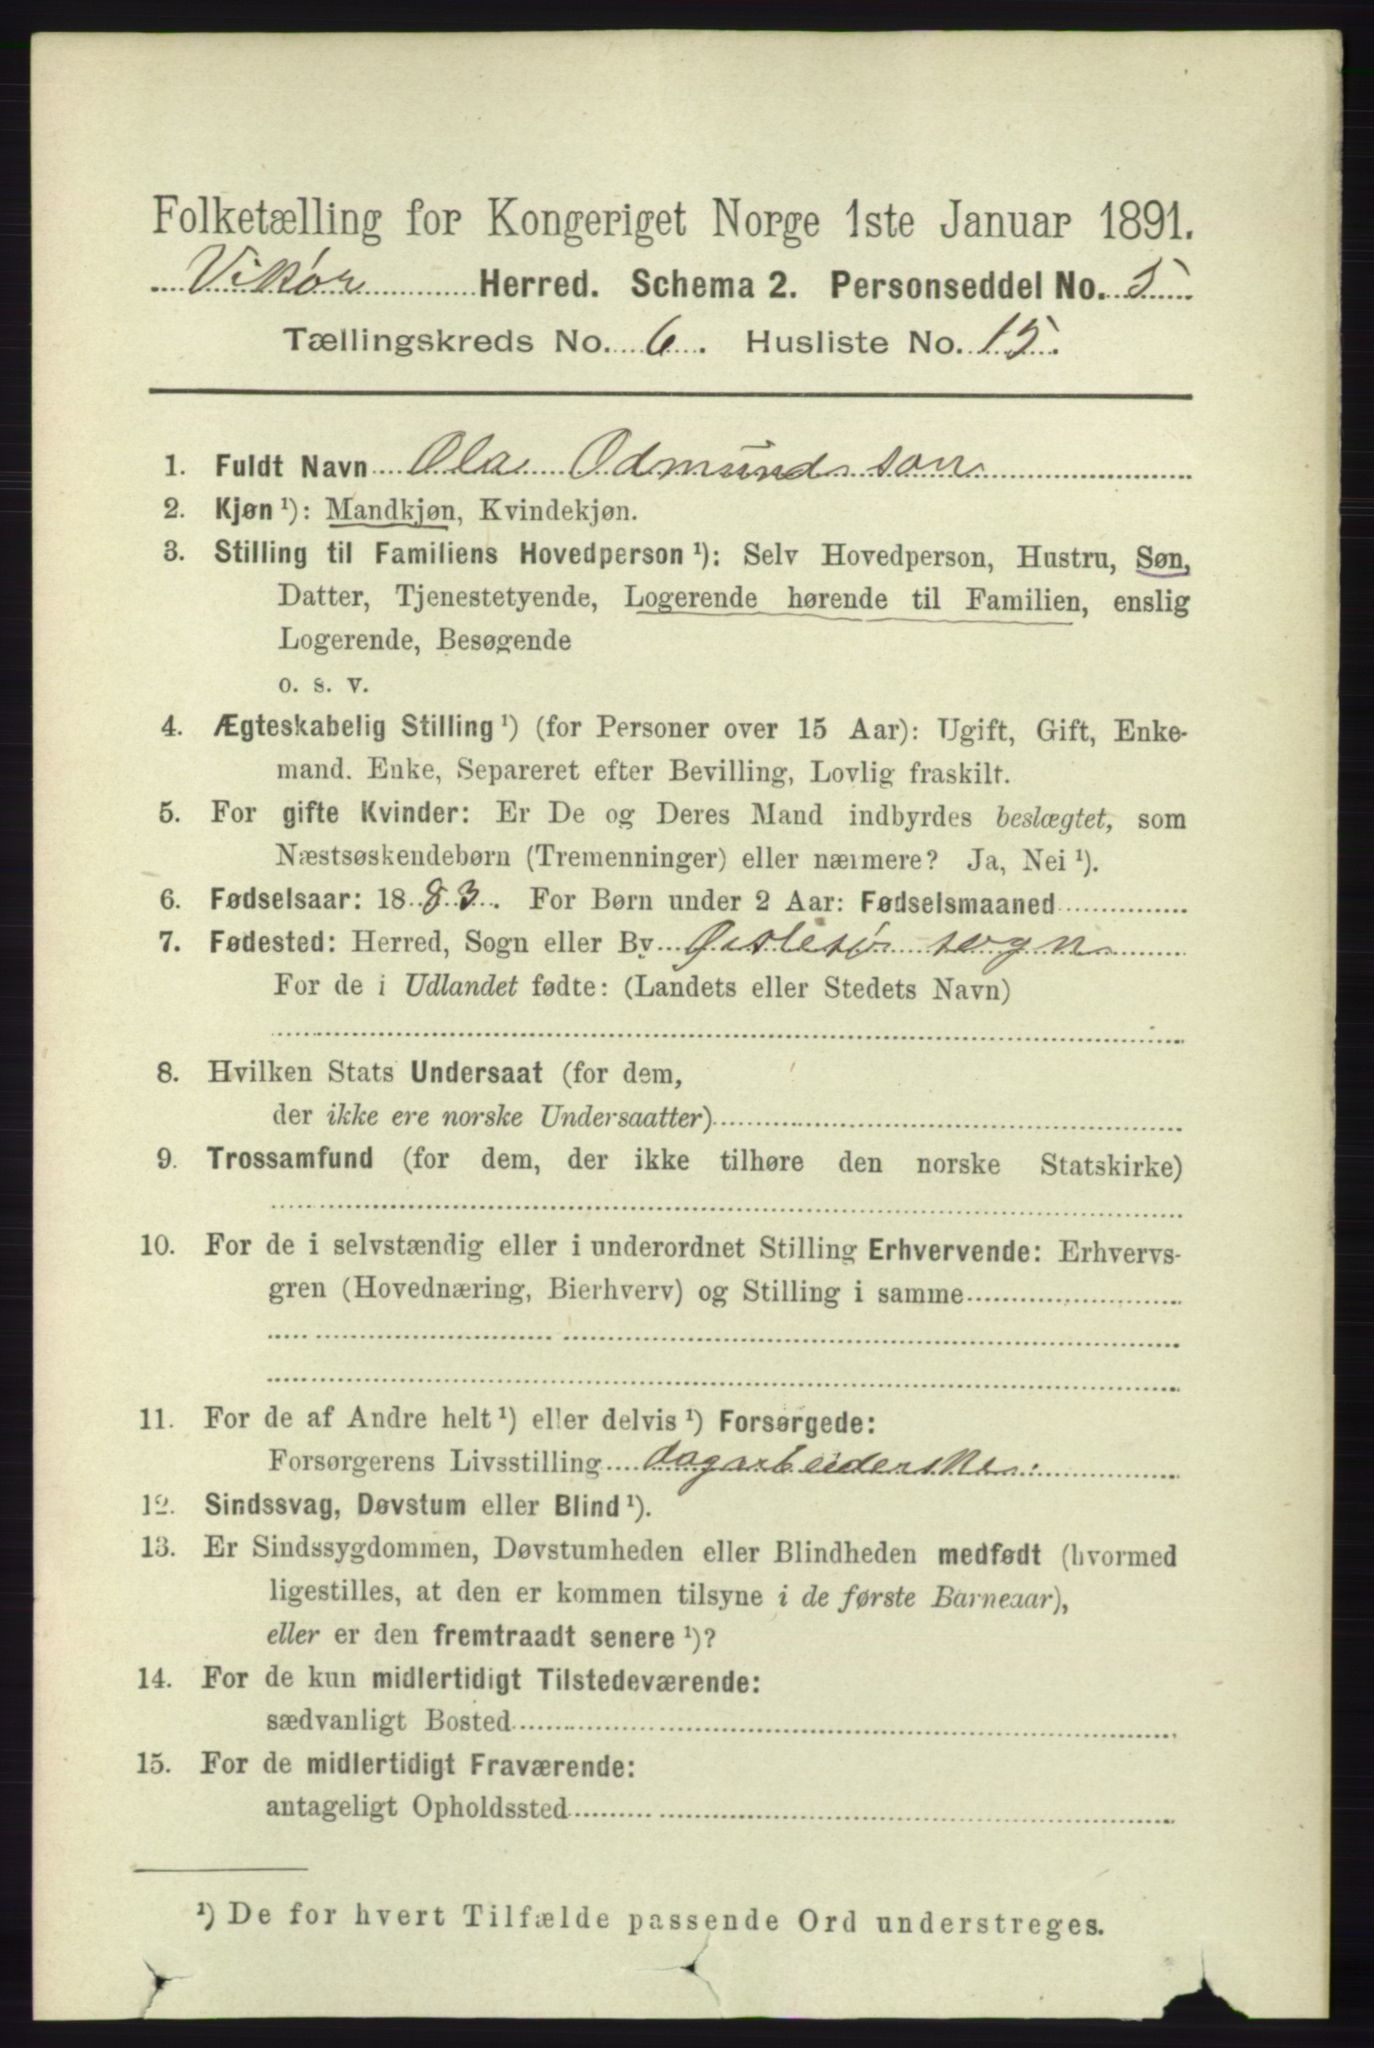 Folketælling for Kongeriget Norge 1ste Januar 1891.
Vikør Herred. Schema 2. Personseddel No. 5
Tællingskreds No. 6. Husliste No. 15.
1. Fuldt Navn Ola Odmundsson
2. Kjøn ¹): Mandkjøn, Kvindekjøn.
3. Stilling til Familiens Hovedperson ¹): Selv Hovedperson, Hustru, Søn,
Datter, Tjenestetyende, Logerende hørende til Familien, enslig
Logerende, Besøgende
o. s. v.
4. Ægteskabelig Stilling ¹) (for Personer over 15 Aar): Ugift, Gift, Enke-
mand. Enke, Separeret efter Bevilling, Lovlig fraskilt.
5. For gifte Kvinder: Er De og Deres Mand indbyrdes beslægtet, som
Næstsøskendebørn (Tremenninger) eller nærmere? Ja, Nei ¹).
6. Fødselsaar: 1883. For Børn under 2 Aar: Fødselsmaaned
7. Fødested: Herred, Sogn eller By Øistesø sogn
For de i Udlandet fødte: (Landets eller Stedets Navn)
8. Hvilken Stats Undersaat (for dem,
der ikke ere norske Undersaatter)
9. Trossamfund (for dem, der ikke tilhøre den norske Statskirke)
10. For de i selvstændig eller i underordnet Stilling Erhvervende: Erhvervs-
gren (Hovednæring, Bierhverv) og Stilling i samme
11. For de af Andre helt ¹) eller delvis ¹) Forsørgede:
Forsørgerens Livsstilling dagarbeiderske
12. Sindssvag, Døvstum eller Blind ¹).
13. Er Sindssygdommen, Døvstumheden eller Blindheden medfødt (hvormed
ligestilles, at den er kommen tilsyne i de første Barneaar),
eller er den fremtraadt senere ¹)?
14. For de kun midlertidigt Tilstedeværende:
sædvanligt Bosted
15. For de midlertidigt Fraværende:
antageligt Opholdssted
¹) De for hvert Tilfælde passende Ord understreges.